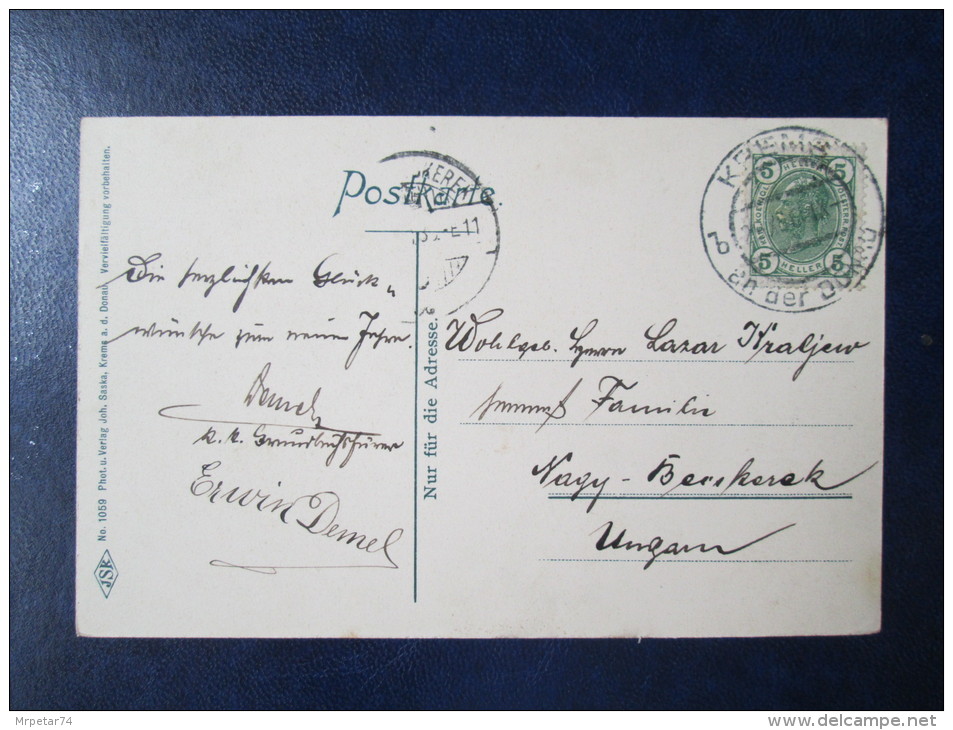 Postkarte.
KREMS
b
an der Donau
5 HELLER 5
5 HELLER 5
Die herzlichsten Glück„
wünsche zum neuen Jahre.
Demel
k. k. Grundbuchsführer
Erwin Demel
Wohlgeb. Herrn Lazar Kraljew
sammt Familie
Nagy-Becskerek
Ungarn
Nur für die Adresse.
No. 1059 Phot. u. Verlag Joh. Saska, Krems a. d. Donau. Vervielfältigung vorbehalten.
JSK
Mrpetar74
delcampe.net